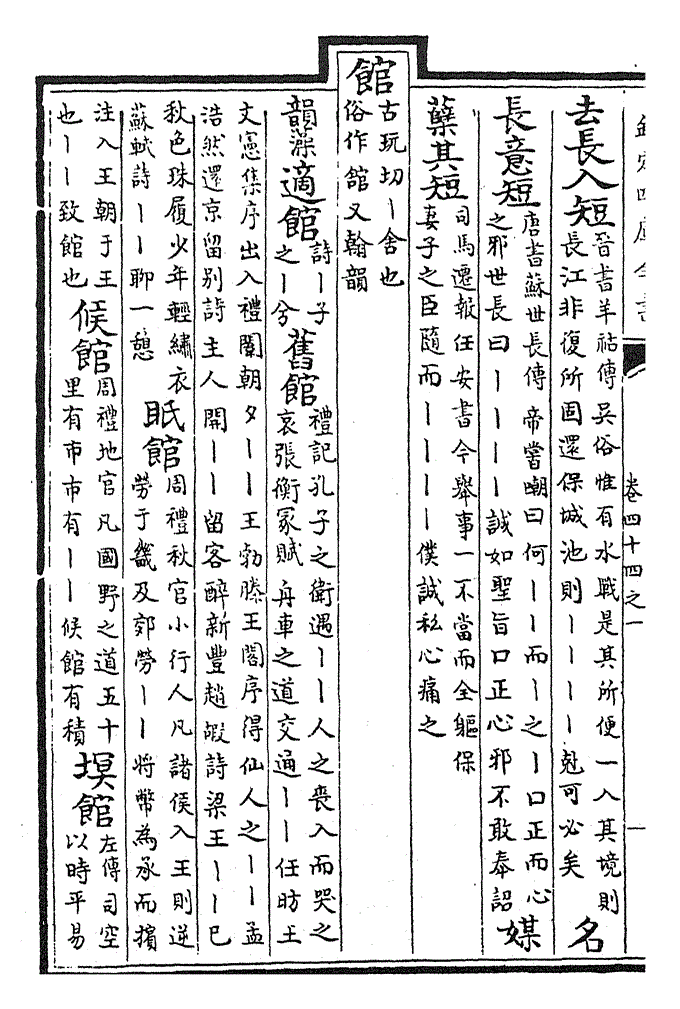 欽定四庫全書
卷四十四之一
一
去長入短
晉書羊祜傳吳俗惟有水戰是其所便一入其境則
長江非復所固還保城池則丨丨丨丨尅可必矣
名
長意短
唐書蘇世長傳帝嘗嘲曰何丨丨而丨之丨口正而心
之邪世長曰丨丨丨丨誠如聖旨口正心邪不敢奉詔
媒
蘖其短
司馬遷報任安書今舉事一不當而全軀保
妻子之臣隨而丨丨丨丨僕誠私心痛之
館
古玩切丨舍也
俗作舘又翰韻
韻藻適館
詩丨子
之丨兮
舊館
禮記孔子之衛遇丨丨人之喪入而哭之
哀張衡冢賦舟車之道交通丨丨任昉王
文憲集序出入禮闈朝夕丨丨王勃滕王閣序得仙人之丨丨孟
浩然還京留别詩主人開丨丨留客醉新豐趙嘏詩梁王丨丨已
秋色珠履少年輕繡衣
蘇軾詩丨丨聊一憩
眂館
周禮秋官小行人凡諸侯入王則逆
勞于畿及郊勞丨丨將幣為承而擯
注入王朝于王
也丨丨致館也
候館
周禮地官凡國野之道五十
里有市市有丨丨候館有積
塓館
左傳司空
以時平易